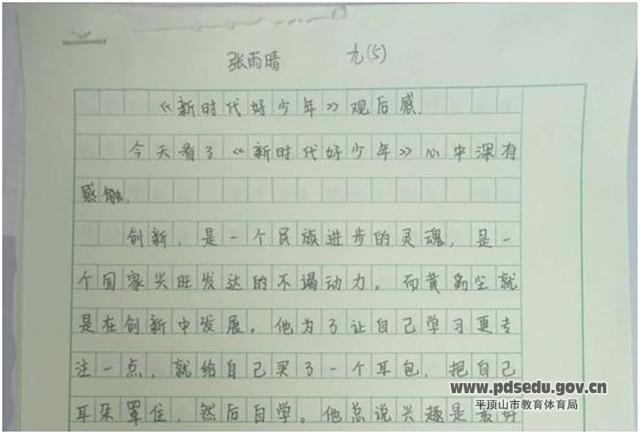 张雨晴 九(5)
《新时代好少年》观后感.
今天看了《新时代好少年》心中深有
感触.
创新,是一个民族进步的灵魂,是一
个国家兴旺发达的不竭动力。而黄尘就
是在创新中发展。他为了让自己学习更专
注一点,就给自己买了一个耳包,把自己
耳朵罩住,然后自学。他总说兴趣是最好
www.pdsedu.gov.cn
平顶山市教育体育局